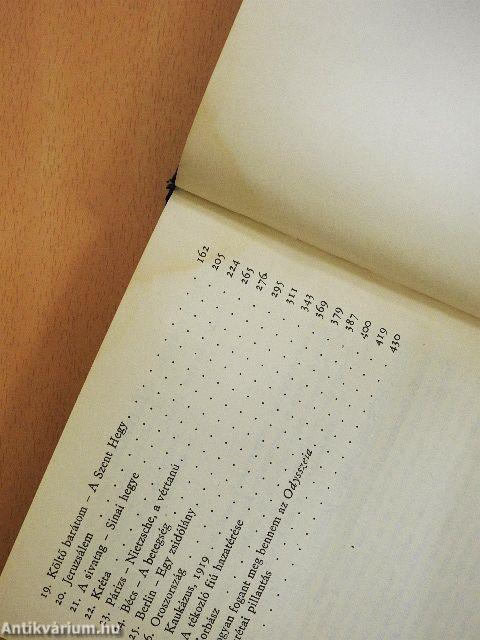 19. Költő barátom – A Szent Hegy . . . . . . . . . . 162
20. Jeruzsálem . . . . . . . . . . 205
21. A sivatag – Sinai hegye . . . . . . . . . . 224
22. Kréta . . . . . . . . . . 265
23. Párizs – Nietzsche, a vértanú . . . . . . . . . . 276
4. Bécs – A betegség . . . . . . . . . . 295
Berlin – Egy zsidólány . . . . . . . . . . 311
6. Oroszország . . . . . . . . . . 343
Kaukázus, 1919 . . . . . . . . . . 369
A tékozló fiú hazatérése . . . . . . . . . . 379
orbász . . . . . . . . . . 387
gyan fogant meg bennem az Odysszeia . . . . . . . . . . 400
rétai pillantás . . . . . . . . . . 419
430
Antikvárium.hu